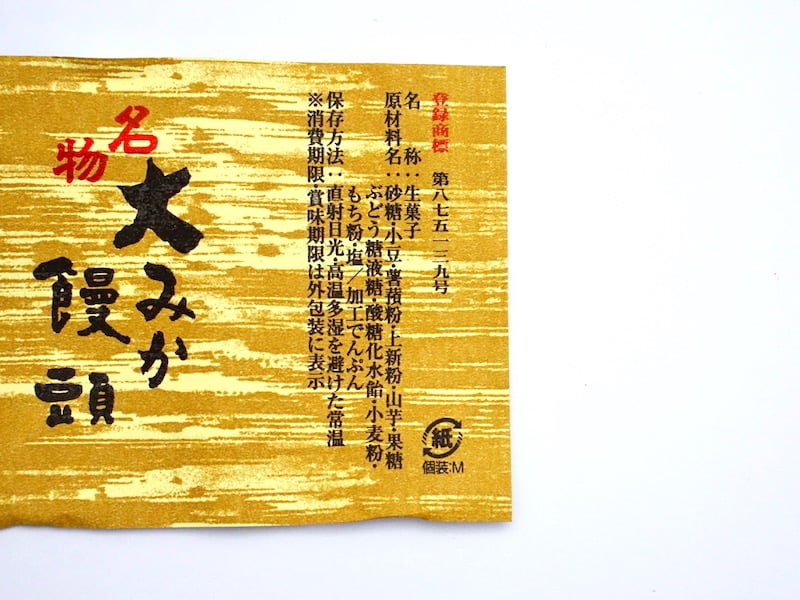 登録商標 第八七五一三九号
名 称：生菓子
原材料名：砂糖・小豆・薯蕷粉・上新粉・山芋・果糖
ぶどう糖液糖・酸糖化水飴・小麦粉・
もち粉・塩／加工でんぷん
保存方法：直射日光・高温多湿を避けた常温
※消費期限・賞味期限は外包装に表示
紙
個装:M
名物
大みか
饅頭